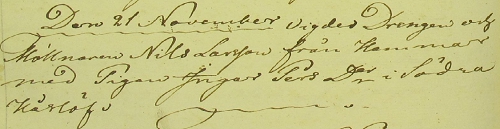 Den 21 November vigdes Drengen och
Möllnaren Nils Larsson från Hammar
med Pigan Ingar Pers Dr i Södra
Kärlöf.